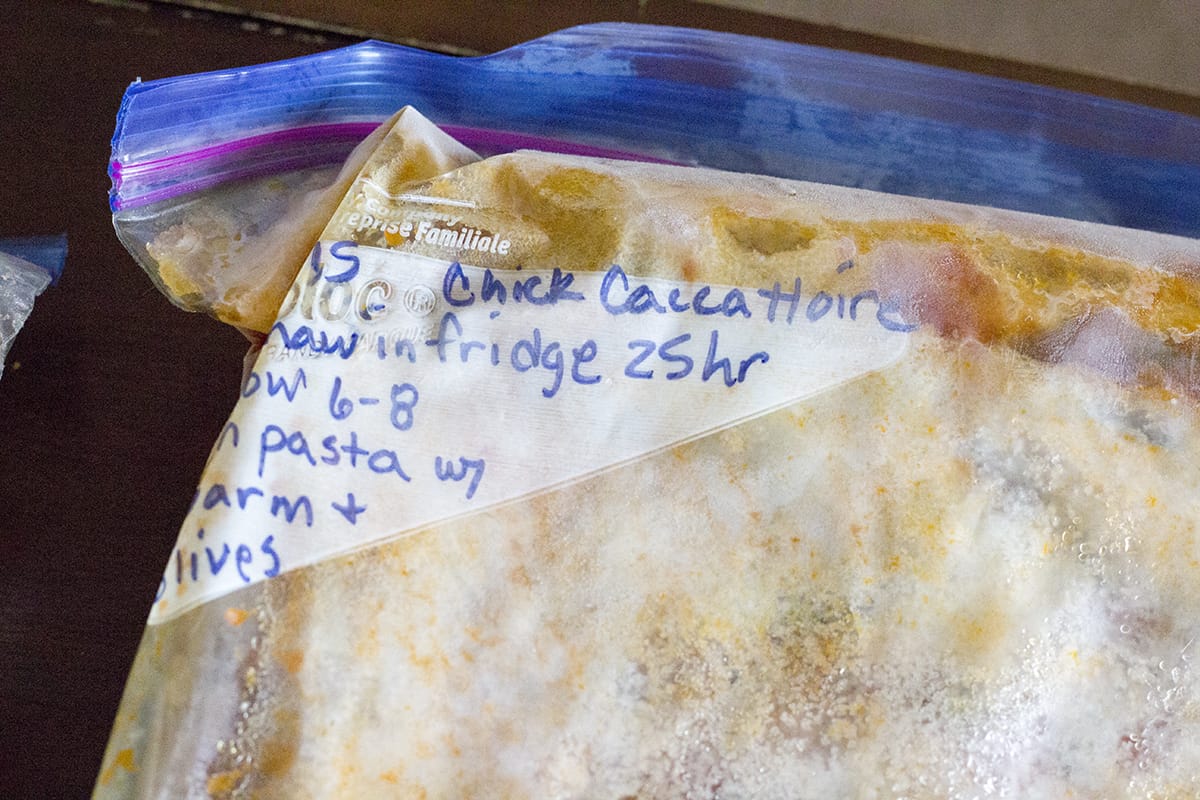 Company
reprise Familiale
ploc ®
IS - Chick Caccattoire
haw in fridge 25hr
ow 6-8
n pasta w/
arm +
lives